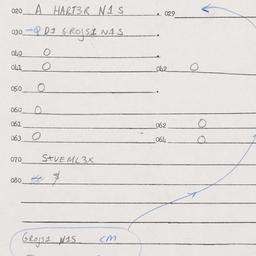 020 A HART3R N1S 029
030 → Q D1 GROJS1 N1S
040 O
041 O 042 O
050 O
060 O
061 062 O
063 O 064 O
070 STVEML3X
080 # $
GROJS1 N1S CM